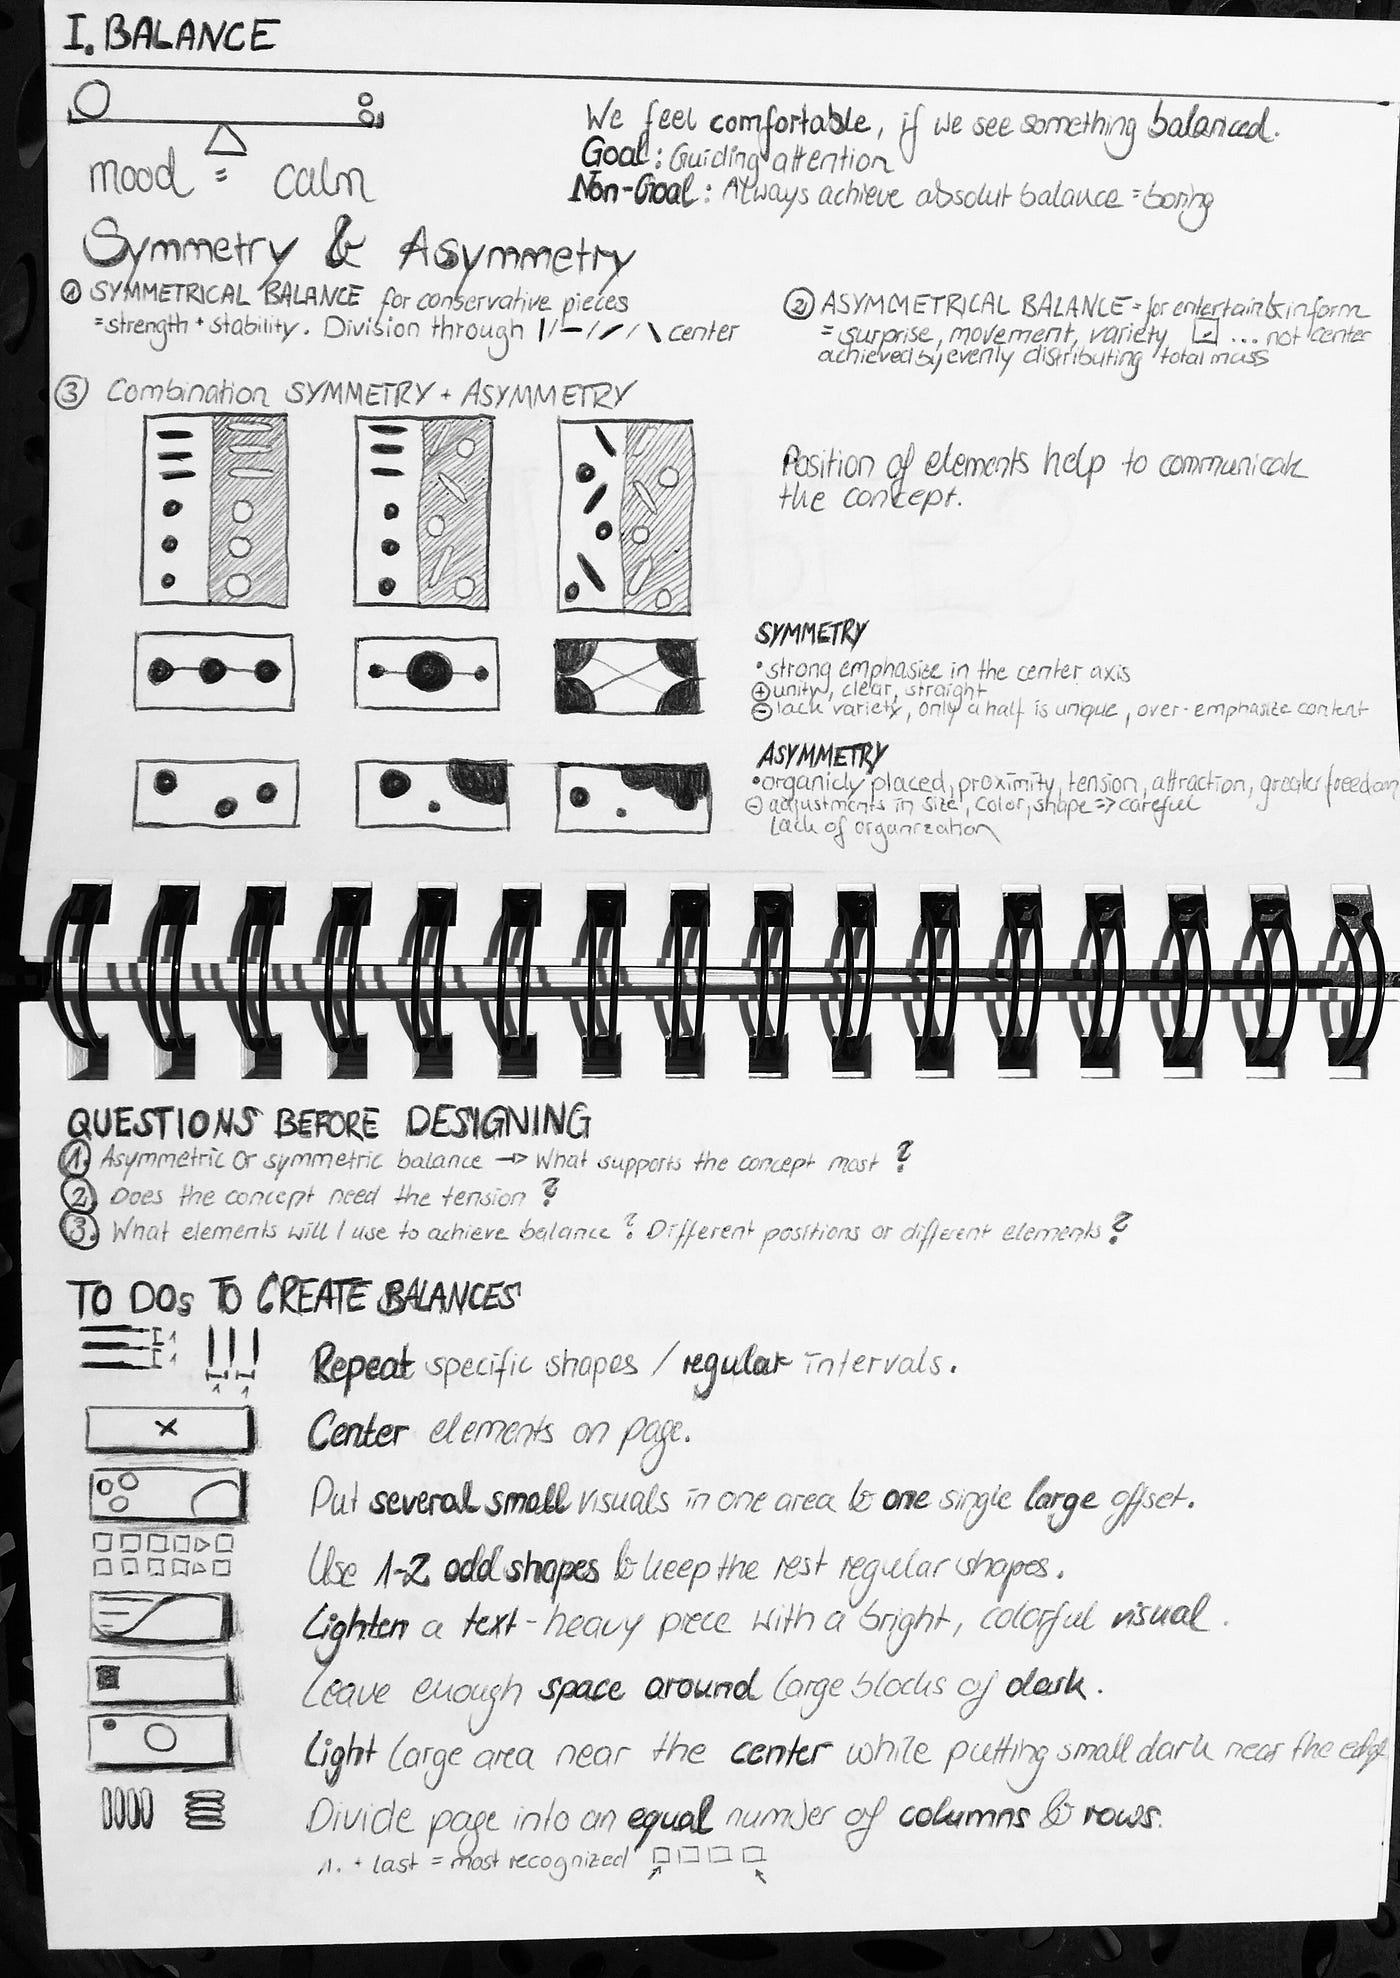 I. BALANCE
mood = calm
We feel comfortable, if we see something balanced.
Goal: Guiding attention
Non-Goal: Always achieve absolut balance = boring
Symmetry & Asymmetry
① SYMMETRICAL BALANCE for conservative pieces
= strength + stability. Division through |/—/／/\ center
② ASYMMETRICAL BALANCE = for entertain & inform
= surprise, movement, variety ... not center
achieved by evenly distributing total mass
③ Combination SYMMETRY + ASYMMETRY
Position of elements help to communicate
the concept.
SYMMETRY
• strong emphasize in the center axis
⊕ unity, clear, straight
⊖ lack variety, only a half is unique, over-emphasize content
ASYMMETRY
• organicly placed, proximity, tension, attraction, greater freedom
⊖ adjustments in size, color, shape => careful
Lack of organization
QUESTIONS BEFORE DESIGNING
1. Asymmetric or symmetric balance → What supports the concept most?
2. Does the concept need the tension?
3. What elements will I use to achieve balance? Different positions or different elements?
TO DOs TO CREATE BALANCES
1
1
1 1
Repeat specific shapes / regular intervals.
Center elements on page.
Put several small visuals in one area & one single large offset.
Use 1-2 odd shapes & keep the rest regular shapes.
Lighten a text-heavy piece with a bright, colorful visual.
Leave enough space around large blocks of dark.
Light large area near the center while putting small dark near the edge
Divide page into an equal number of columns & rows.
1. + last = most recognized